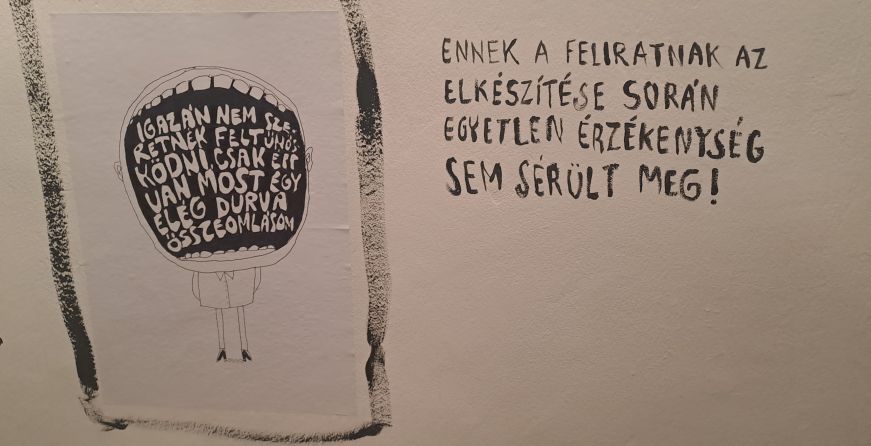 IGAZÁN NEM SZE-
RETNÉK FELTŰNŐS-
KÖDNI, CSAK ITT
VAN MOST EGY
ELÉG DURVA
ÖSSZEOMLÁSOM
ENNEK A FELIRATNAK AZ
ELKÉSZÍTÉSE SORÁN
EGYETLEN ÉRZÉKENYSÉG
SEM SÉRÜLT MEG!